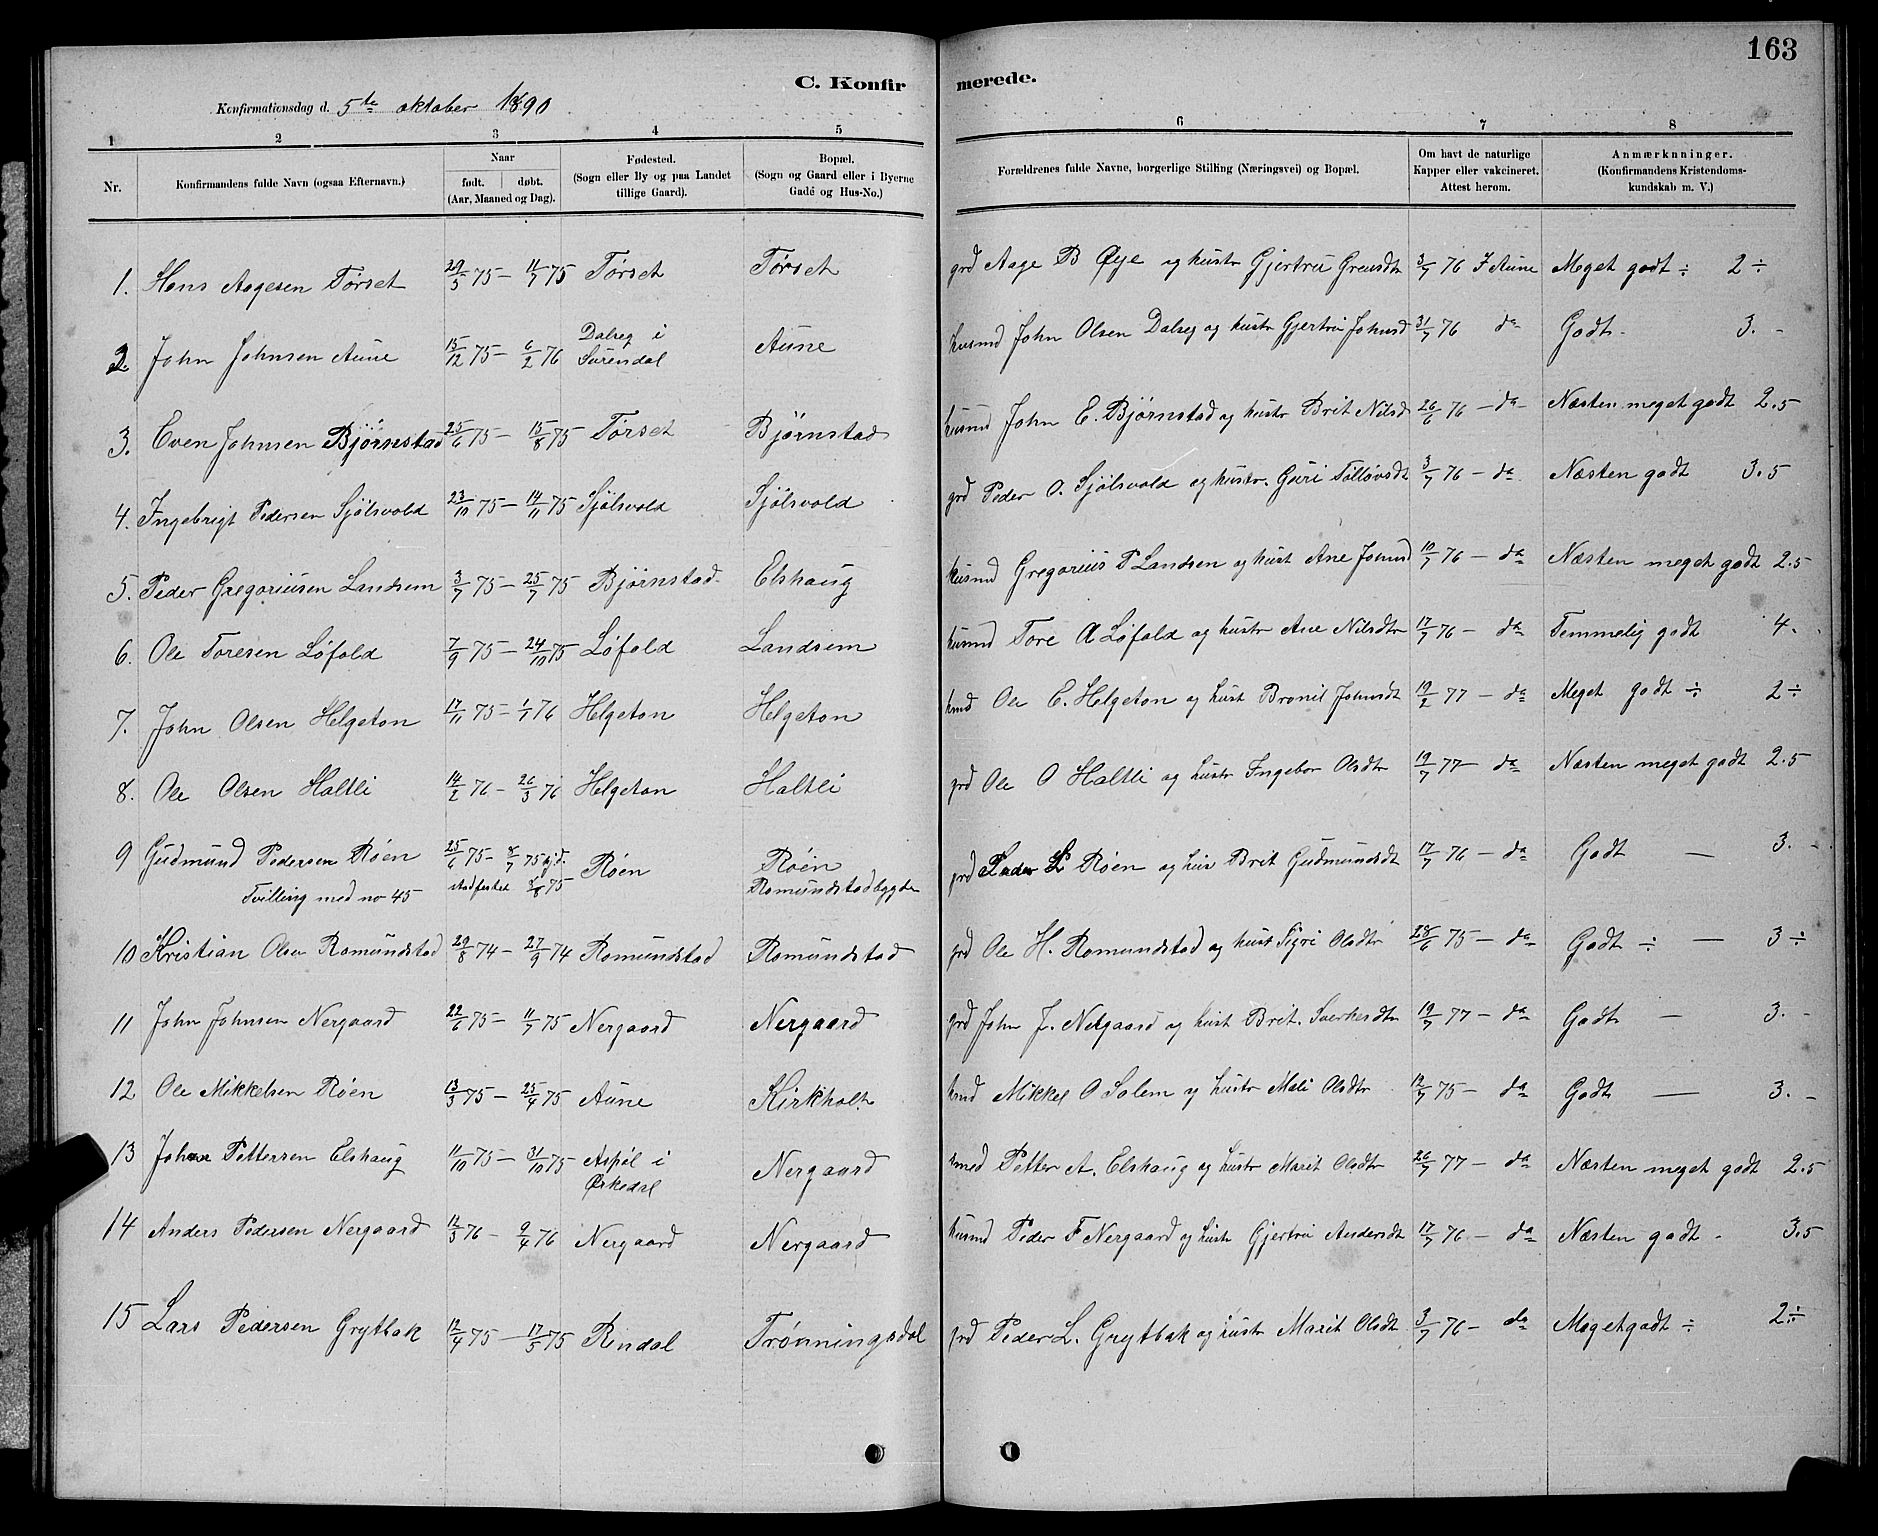 163
C. Konfirmerede.
Konfirmationsdag d. 5te oktober 1890
1 2 3 4 5 6 7 8
Nr. Konfirmandens fulde Navn (ogsaa Efternavn.) Naar født. døbt. (Aar, Maaned og Dag). Fødested. (Sogn eller By og paa Landet tillige Gaard). Bopæl. (Sogn og Gaard eller i Byerne Gade og Hus-No.) Forældrenes fulde Navne, borgerlige Stilling (Næringsvei) og Bopæl. Om havt de naturlige Kapper eller vakcineret. Attest herom. Anmærknninger. (Konfirmandens Kristendomskundskab m. V.)
1. Hans Aagesen Tørset 29/5 75 – 11/7 75 Tørset Tørset grd Aage B Øye og hustr Gjertru 3/7 76 F Aune Meget godt ÷ 2 ÷
2. John Johnsen Aune 15/12 75 – 6/2 76 Dalseg i Surendal Aune husmd John Olsen Dalseg og hustr Gjertru Johnsd 31/7 76 da Godt 3. -
3. Even Johnsen Bjørnstad 25/6 75 – 15/8 75 Tørset Bjørnstad husmd John E. Bjørnstad og hustr Brit Nilsd 26/6 76 – da Næsten meget godt 2.5
4. Ingebrigt Pedersen Sjølsvold 23/10 75 – 14/11 75 Sjølsvold Sjølsvold grd Peder O. Sjølsvold og hustr. Guri 3/7 76 – da Næsten godt 3.5
5. Peder Gregoriusen Landsem 3/7 75 – 25/7 75 Bjørnstad Elshaug husmd Gregorius P Landsen og hust Ane Johnsd 10/7 76 – da Næsten meget godt 2.5
6. Ole Toresen Løfald 7/9 75 – 24/10 75 Løfald Landsem husmd Tore A Løfald og hustr Ane Nilsdtr 17/7 76 – da Temmelig godt 4.
7. John Olsen Helgeton 17/11 75 – 1/1 76 Helgeton Helgeton hmd Ole E. Helgeton og hust Bronil Johnsdt 19/2 77 – da Meget godt ÷ 2 ÷
8. Ole Olsen Haltli 14/2 76 – 26/3 76 Helgeton Haltli grd Ole O Haltli og hustr Ingebor Olsdtr 19/7 77 – da Næsten meget godt 2.5
9 Gudmund Pedersen Røen 25/6 75 – 8/7 75 hjd. Røen Røen grd Peder L Røen og hus Brit Gudmundsdt 17/7 76 – da Godt – 3. -
Tvilling med no 45 stadfestet 8/8 75 Romundstadbygden
10 Kristian Olsen Romundstad 29/8 74 – 27/9 74 Romundstad Romundstad grd Ole H. Romundstad og hust Sigri Olsdtr 28/6 75 – da Godt ÷ – 3 ÷
11 John Johnsen Nergaard 22/6 75 – 11/7 75 Nergaard Nergaard grd John J. Nergaard og hust Brit. Sverkesdtr 19/7 77 – da Godt – 3. -
12 Ole Mikkelsen Røen 13/3 75 – 25/4 75 Aune Kirkholt hmd Mikkel O Solem og hustr Mali Olsdtr 12/7 75 – da Godt – 3. -
13 Johan Pettersen Elshaug 11/10 75 – 31/10 75 Aspøl i Ørkedal Nergaard smed Petter A. Elshaug og hustr Marit Olsdtr 26/7 77 – da Næsten meget godt 2.5
14 Anders Pedersen Nergaard 12/3 76 – 9/4 76 Nergaard Nergaard husmd Peder F Nergaard og hust Gjertru Andersdt 17/7 76 – da Næsten godt - 3.5
15 Lars Pedersen Grytbak 12/4 75 – 17/5 75 Rindal Trønningsdal grd Peder L. Grytbak og hustr Marit Olsdt 3/7 76 – da Megetgodt ÷ 2 ÷